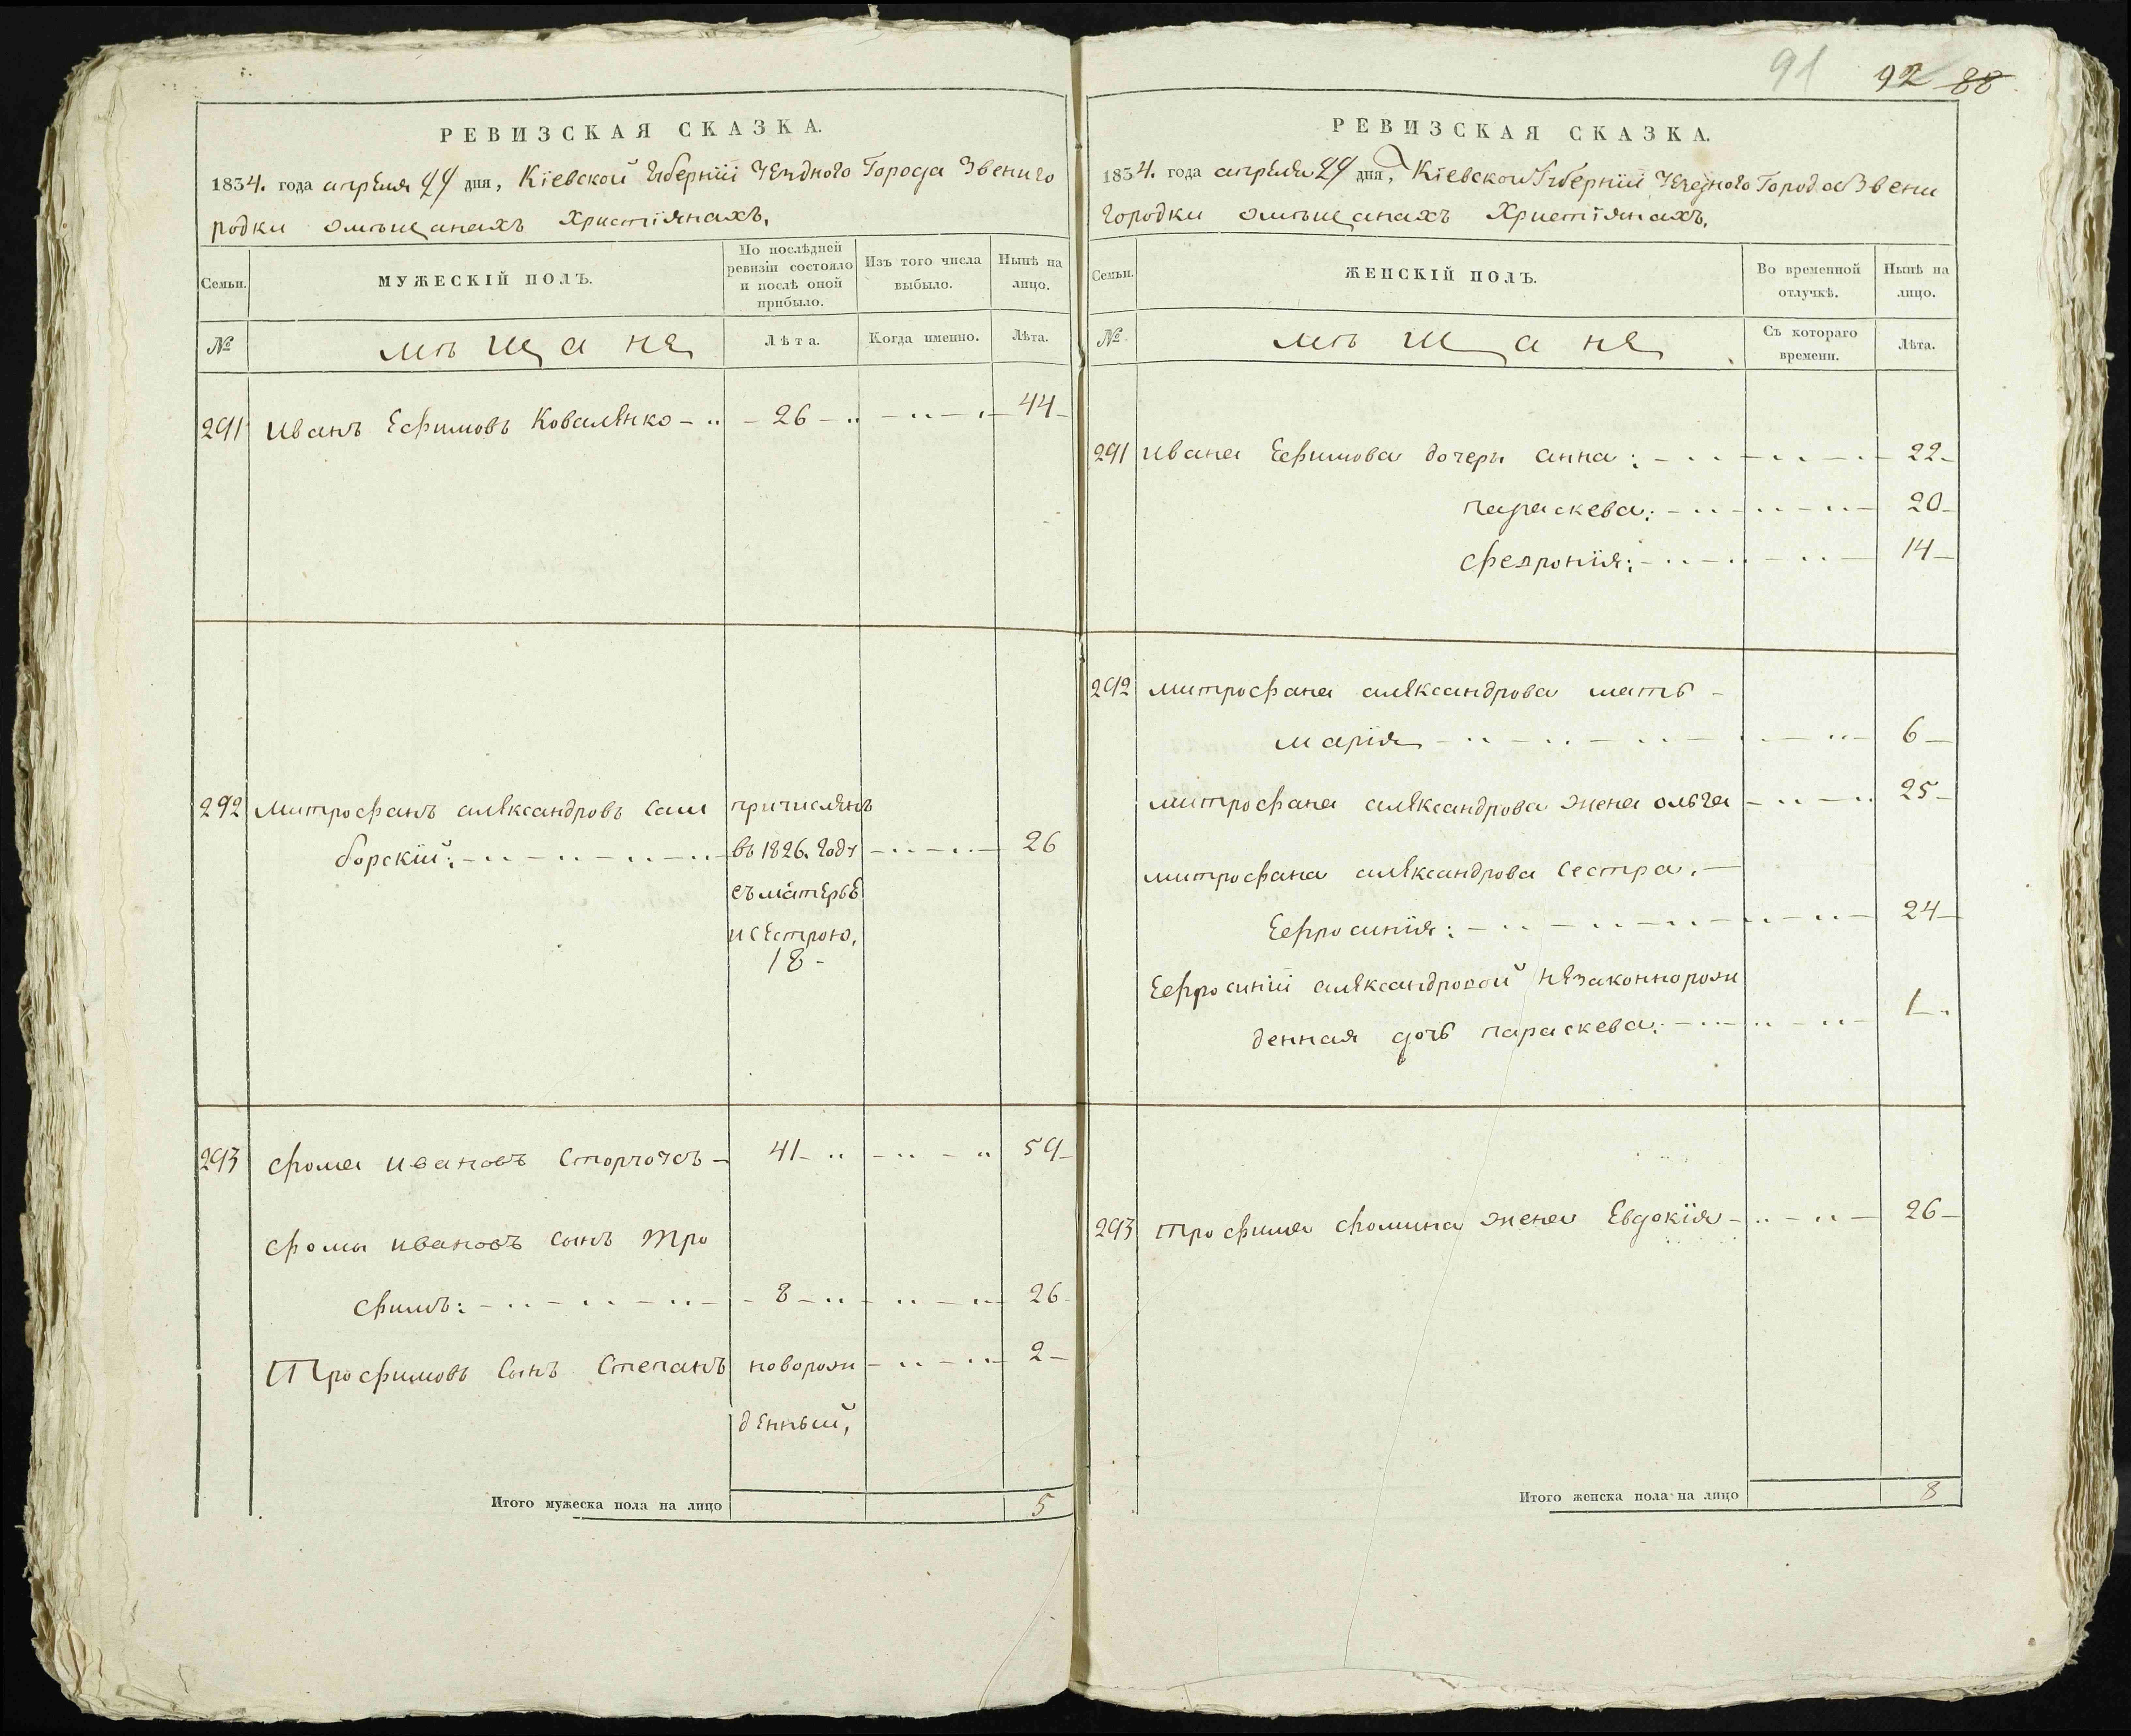 91 92 88
РЕВИЗСКАЯ СКАЗКА.
1834. года апреля 29 дня, Кіевской Губерніи Уездного Города Звениго
родки омѣщанахъ Христіянахъ,
Семьи.
МУЖЕСКІЙ ПОЛЪ.
По послѣдней
ревизіи состояло
и послѣ оной
прибыло.
Изъ того числа
выбыло.
Нынѣ на
лицо.
№
мѣщане
Лѣта.
Когда именно.
Лѣта.
291 Иванъ Ефимовъ Коваленко 26 44
292 Митрофанъ александровъ Сам причисленъ
борскій: въ 1826. Году 26
съ матерье
и Сестрою,
18
293 Фома Ивановъ 41 59
Фомы Ивановъ сынъ Тро
фимъ: 8 26
Трофимовъ Сынъ Степанъ поворож 2
денный,
Итого мужеска пола на лицо 5
РЕВИЗСКАЯ СКАЗКА.
1834. года апреля 29 дня, Кіевской Губерніи Уездного Города Звени
Городки омѣщанахъ Христіянахъ,
Семьи.
ЖЕНСКІЙ ПОЛЪ.
Во временной
отлучкѣ.
Нынѣ на
лицо.
№
мѣщане
Съ котораго
времени.
Лѣта.
291 Ивана Ефимова дочеры анна: 22
параскева: 20
Февронія: 14
292 митрофана александрова мать
марія 6
митрофана александрова жена ольга 25
митрофана александрова Сестра.
Ефросинія: 24
Ефросиніи александровой незаконнорож
денная дочь параскева: 1
293 Трофима Фомина жена Евдокія 26
Итого женска пола на лицо 8